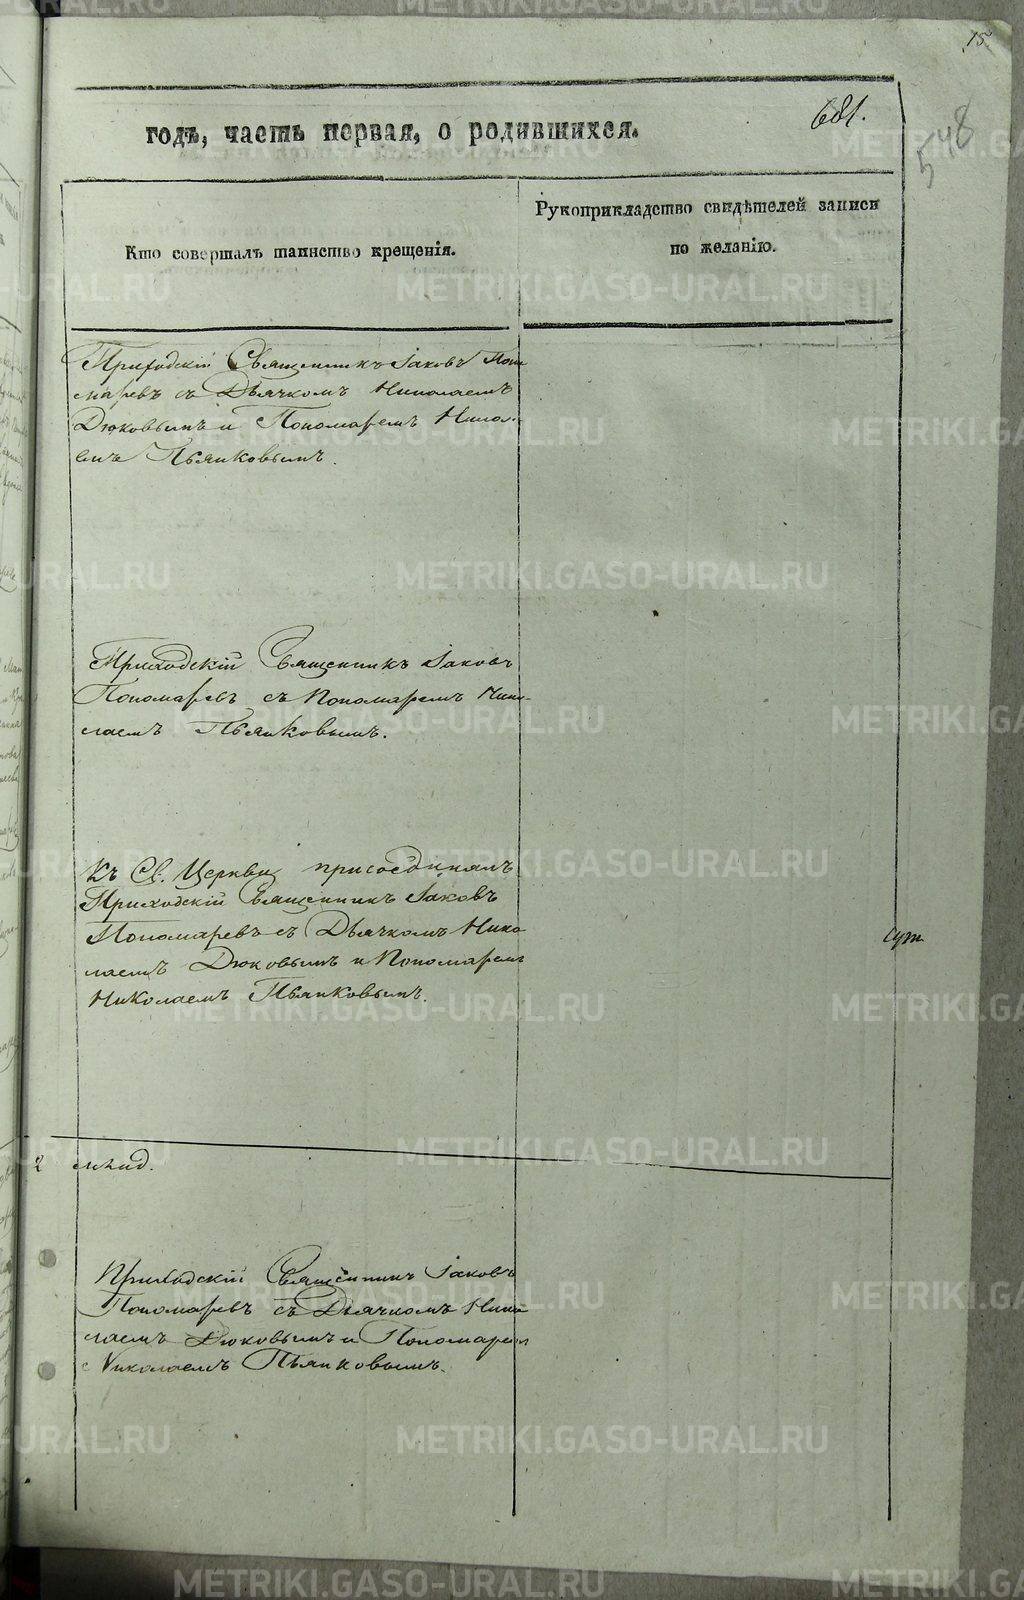 15
681.
548
годъ, часть первая, о родившихся.
Кто совершалъ таинство крещенія.
Рукоприкладство свидѣтелей записи
по желанію.
Приходскій Священникъ Іаковъ Поно
маревъ съ Дьячкомъ Николаемъ
Дюковымъ и Пономаремъ Никола-
емъ Пьянковымъ.
Приходскій Священникъ Іаковъ
Пономаревъ съ Пономаремъ Нико-
лаемъ Пьянковымъ.
Къ Св. Церкви присоединялъ
Приходскій Священникъ Іаковъ
Пономаревъ съ Дьячкомъ Нико
лаемъ Дюковымъ и Пономаремъ
Николаемъ Пьянковымъ.
2
Приходскій Священникъ Іаковъ
Пономаревъ съ Дьячкомъ Нико
лаемъ Дюковымъ и Пономаремъ
Николаемъ Пьянковымъ.
METRIKI.GASO-URAL.RU